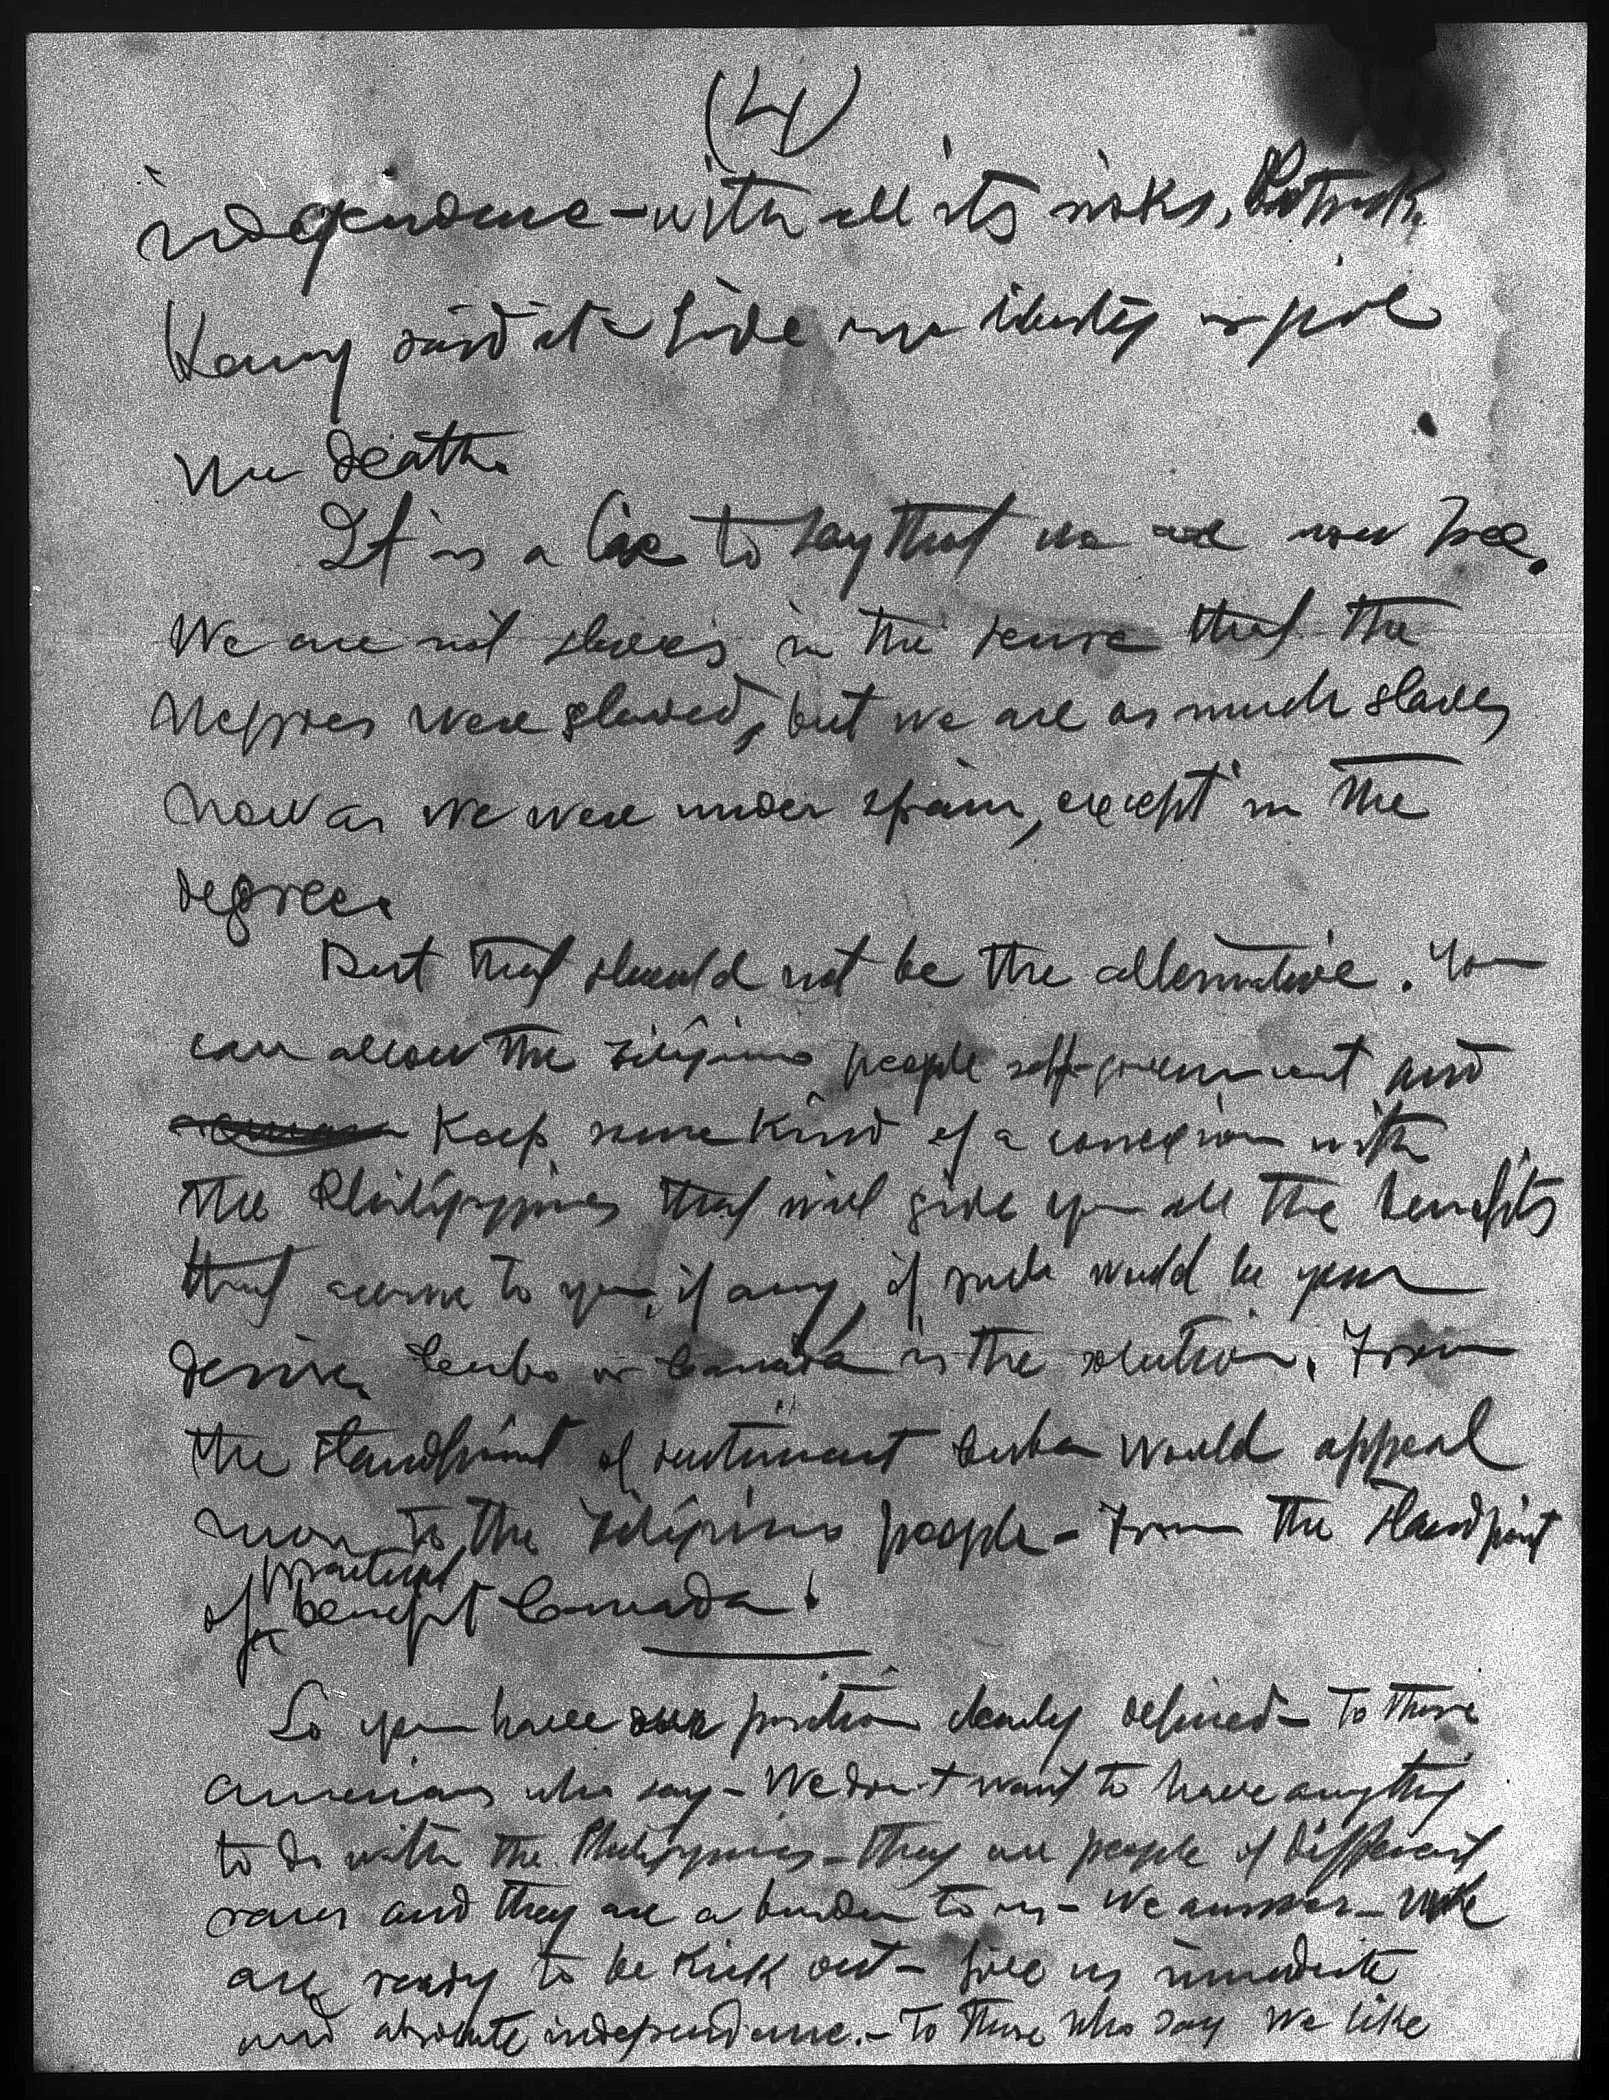 (4)
independence - with all its risks, Patrick
Henry said it - Give me liberty or give
me death.
It is a lie to say that we are now free.
We are not slaves in the sense that the
Negroes were slaved, but we are as much slaves
now as we were under Spain, except in the
degree.
But that should not be the alternative. You
can allow the Filipino people self-government and
Keep some Kind of a conexion with
the Philippines that will give you all the benefits
that accrue to you, if any, if such would be your
desire. Cuba or Canada is the solution. From
the standpoint of sentiment Cuba would appeal
more to the Filipino people - From the standpoint
practical
of benefit Canada.
So you have our position clearly defined - To those
Americans who say - We don't want to have anything
to do with the Philippines - they are people of different
races and they are a burden to us - We answer - We
are ready to be Kick out - Give us immediate
and absolute independence. - To those who say We like